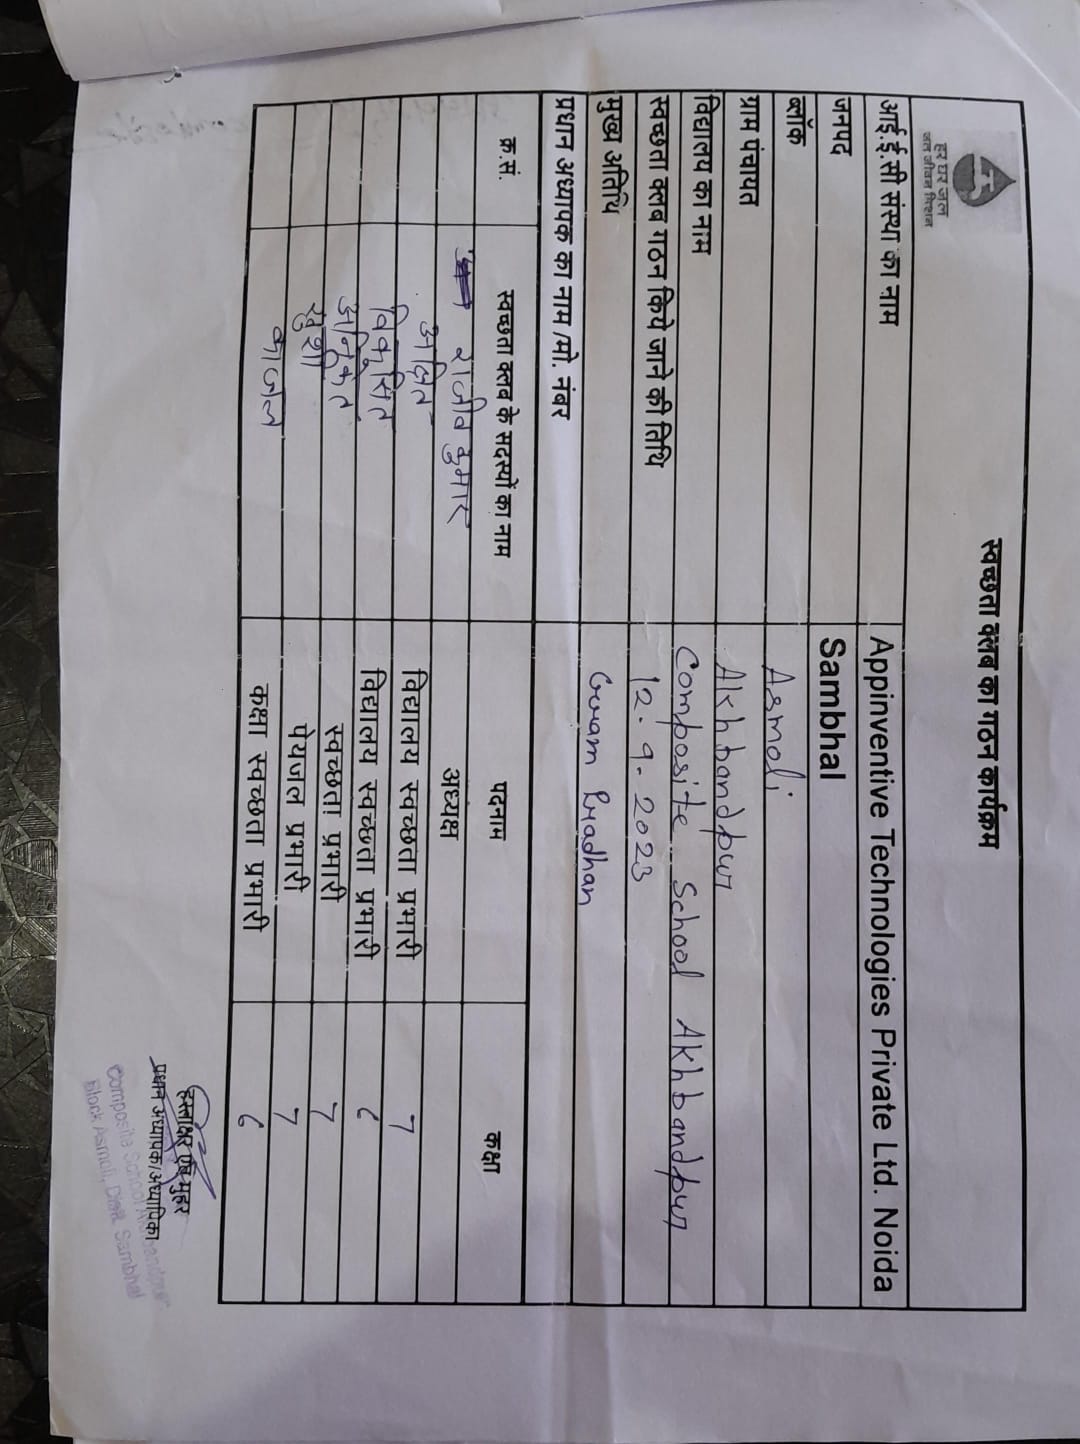 स्वच्छता क्लब का गठन कार्यक्रम
हर घर जल
जल जीवन मिशन
आई.ई.सी संस्था का नाम Appinventive Technologies Private Ltd. Noida
जनपद Sambhal
ब्लॉक Asmoli
ग्राम पंचायत Akhbandpur
विद्यालय का नाम Composite School Akhbandpur
स्वच्छता क्लब गठन किये जाने की तिथि 12.9.2023
मुख्य अतिथि Gram Pradhan
प्रधान अध्यापक का नाम /मो. नंबर
क्र.सं. स्वच्छता क्लब के सदस्यों का नाम पदनाम कक्षा
राजीव कुमार अध्यक्ष
अक्षित विद्यालय स्वच्छता प्रभारी 7
विकसित विद्यालय स्वच्छता प्रभारी 6
अनिकेत स्वच्छता प्रभारी 7
खुशी पेयजल प्रभारी 7
काजल कक्षा स्वच्छता प्रभारी 6
हस्ताक्षर एवं मुहर
प्रधान अध्यापक/अध्यापिका
Composite School
Block Asmoli, Distt. Sambhal